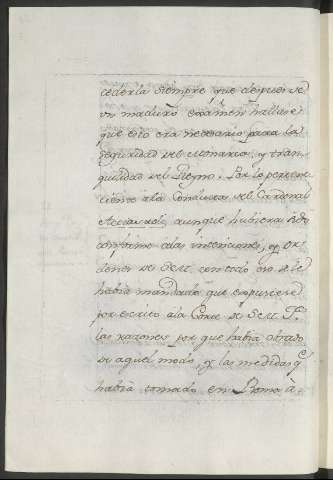 cederla siempre que despues de
un maduro examen hallase
que esto era necesario para la
seguridad del Monarca, y tran-
quilidad del Reyno. Por lo pertene-
ciente a la Conducta del Cardenal
Acciaioli, aunque hubiera sido
a las intenciones, y or-
denes de S. M. con todo eso se le
habia mandado que expusiese
por escrito a la Corte de S. M. F.
las razones por que habia obrado
de aquel modo, y las medidas q.e
habia tomado en Roma à